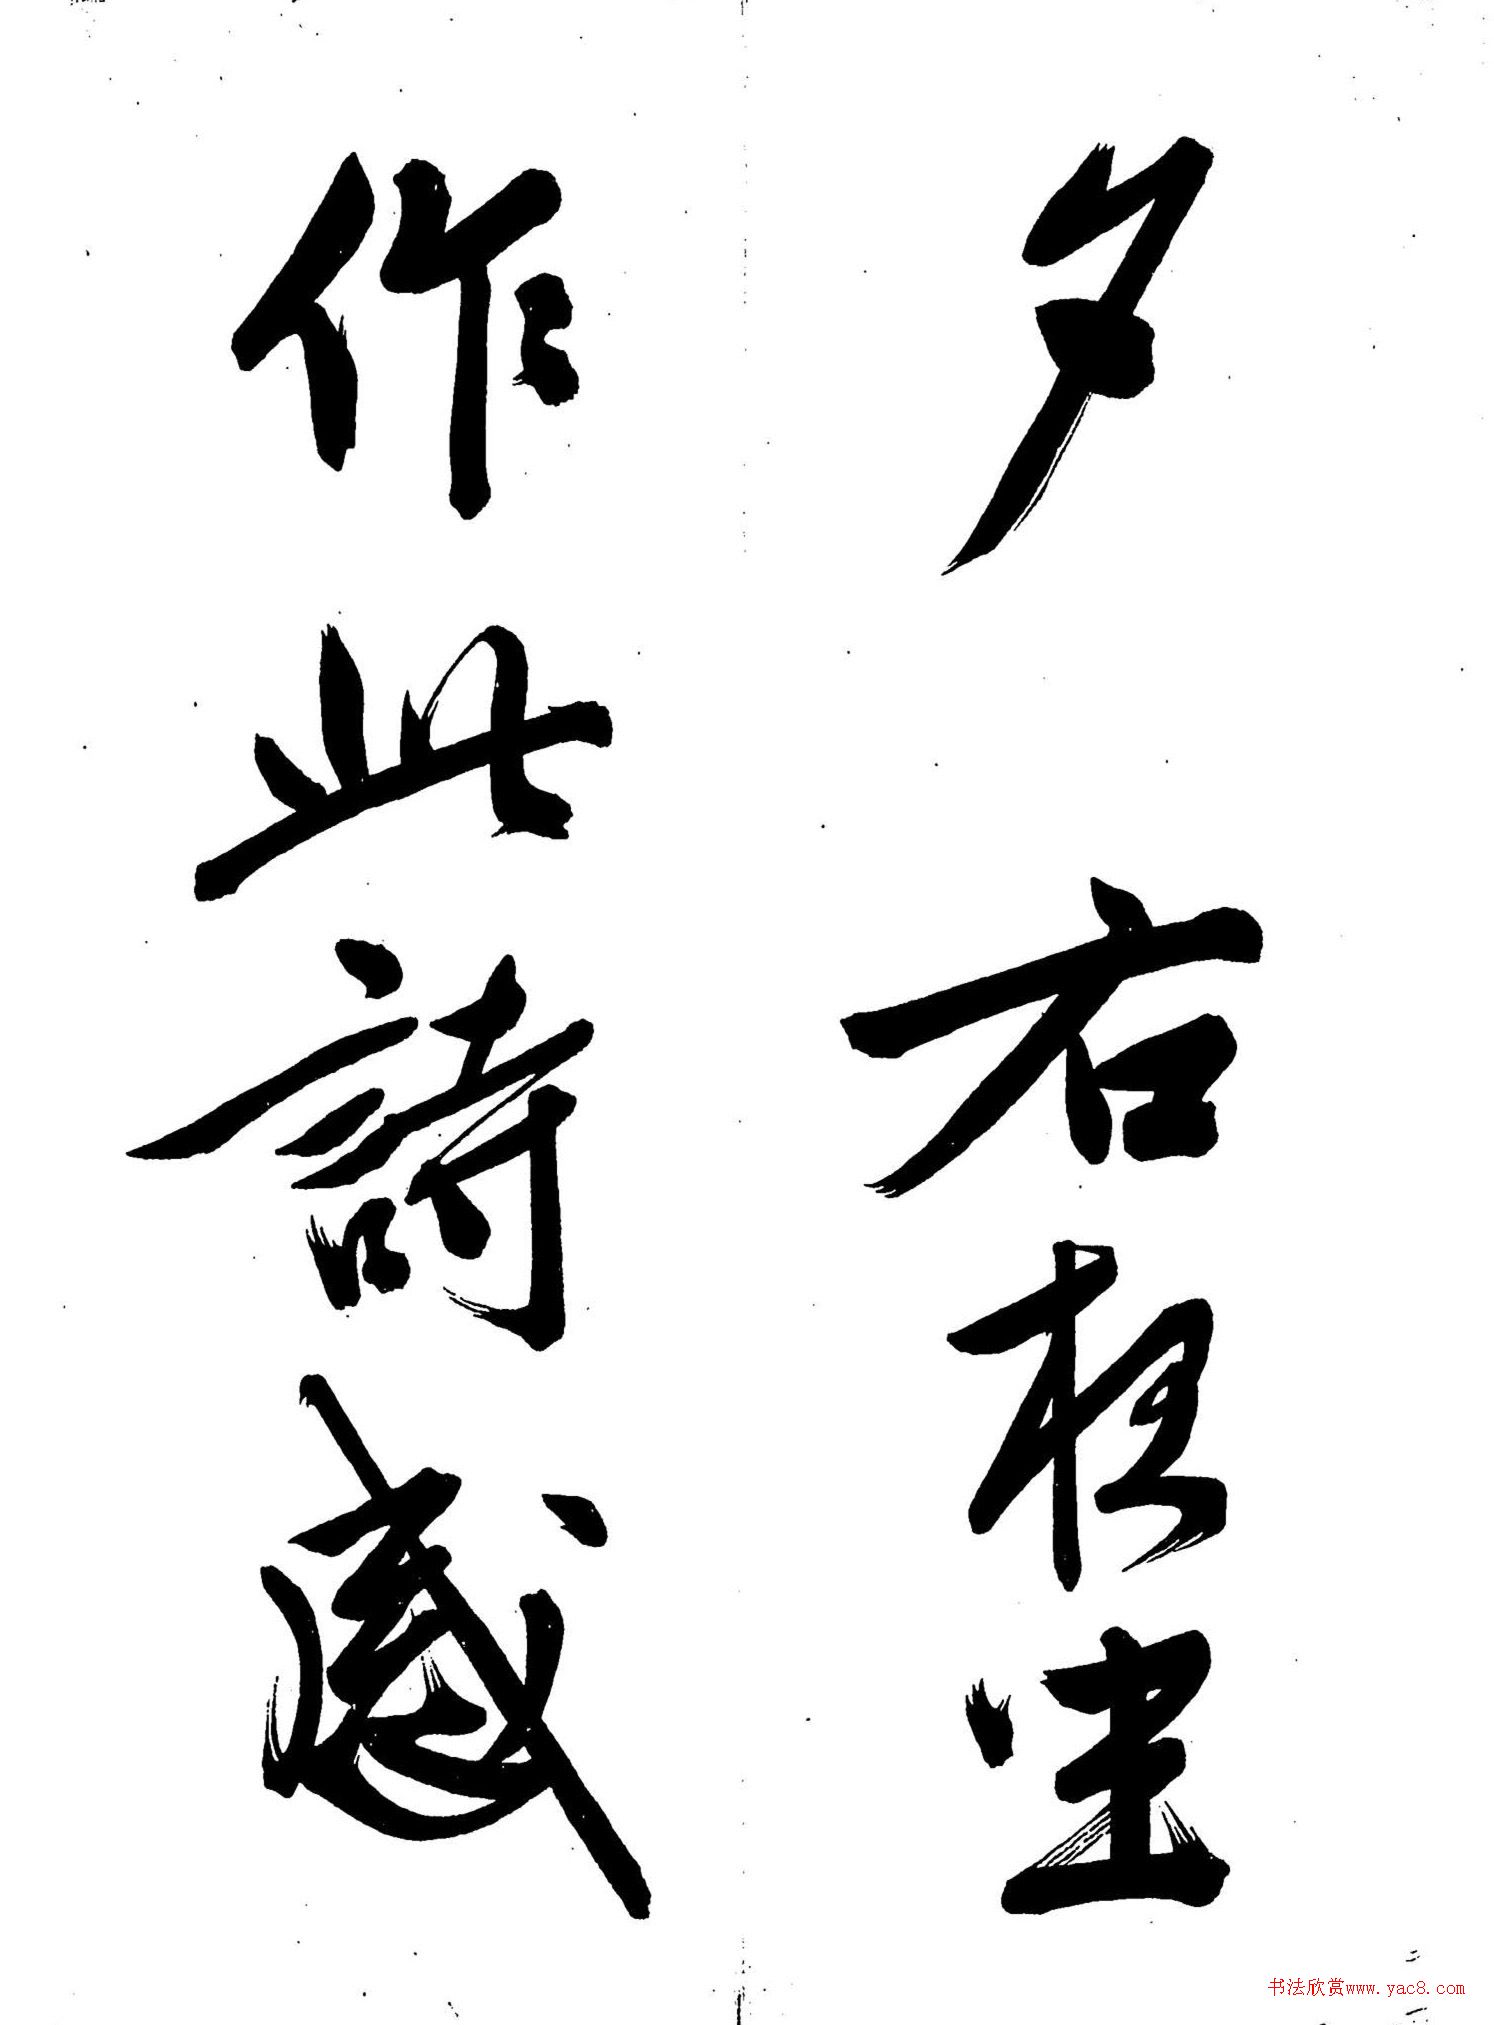 夕 右桂堂
作此詩感
书法欣赏www.yac8.com